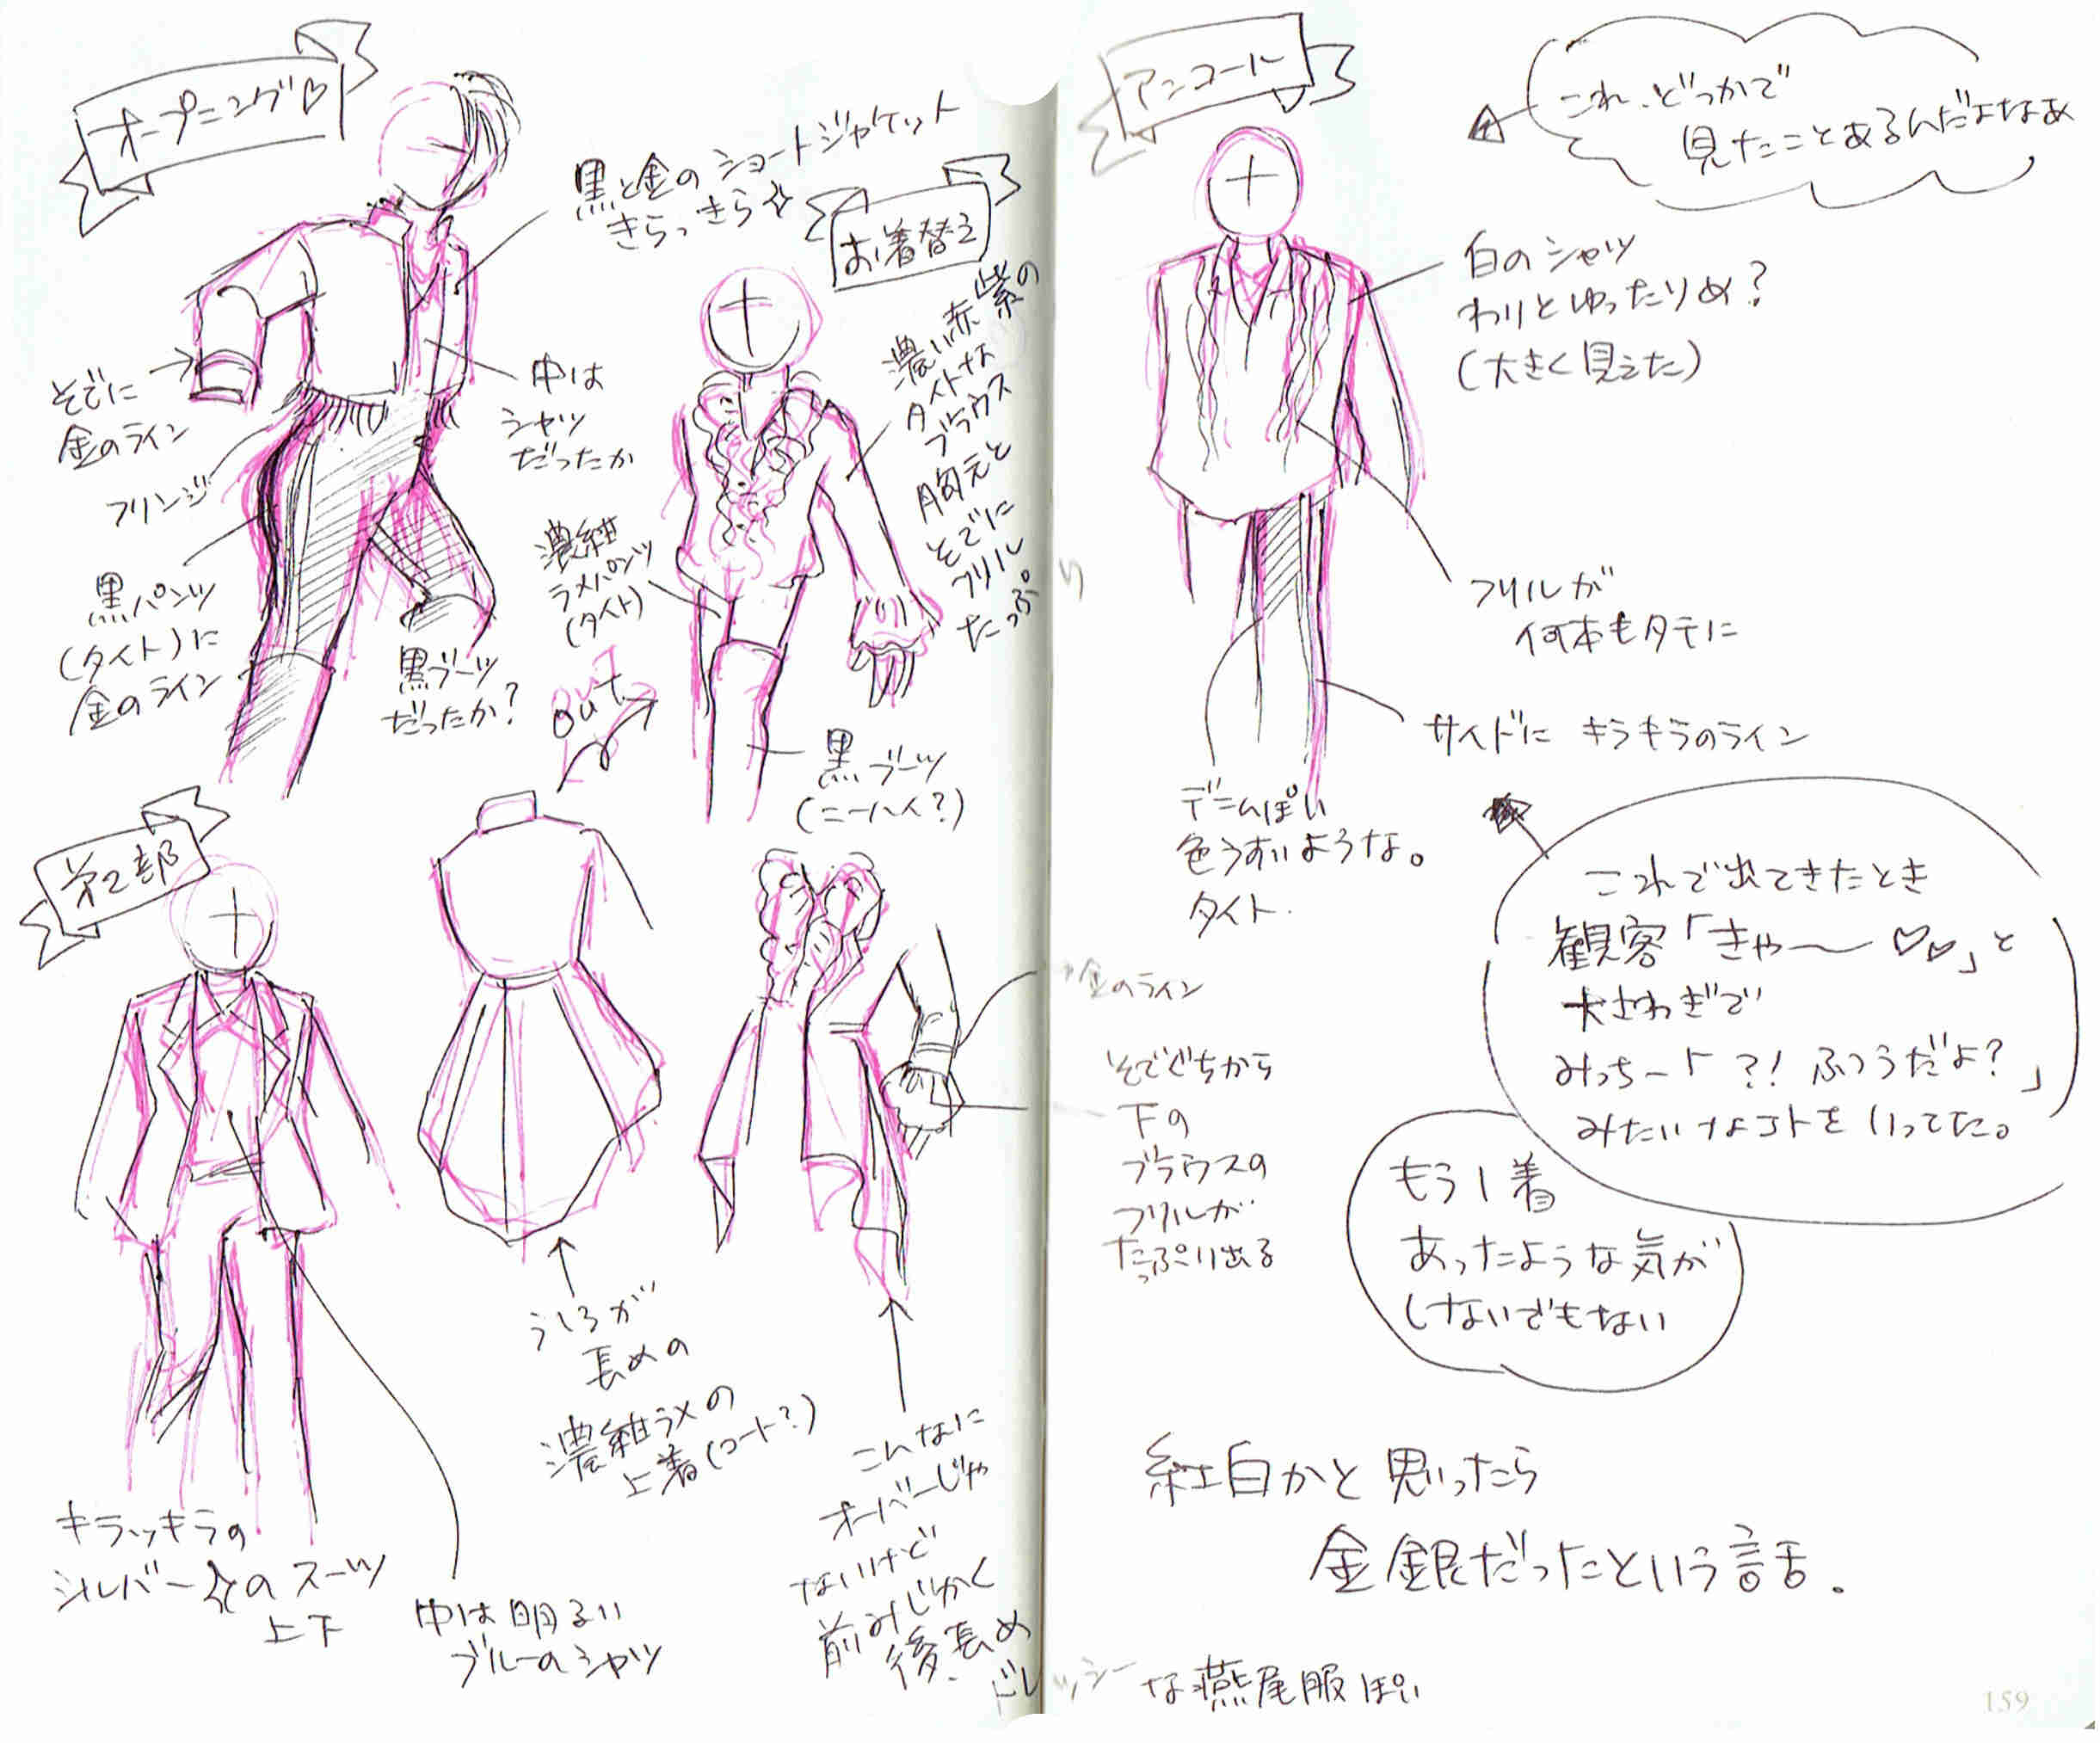 オープニング♡
黒と金のショートジャケット
きらっきら☆
そでに
金のライン
フリンジ
中は
シャツ
だったか
黒パンツ
(タイト)に
金のライン
黒ブーツ
だったか？
お着替え
濃い赤紫の
タイトな
ブラウス
胸元と
そでに
フリル
たっぷり
濃紺
ラメパンツ
(タイト)
out
黒ブーツ
(ニーハイ？)
第2部
キラッキラの
シルバー☆のスーツ
上下
中は明るい
ブルーのシャツ
うしろが
長めの
濃紺ラメの
上着(コート？)
金のライン
そでぐちから
下の
ブラウスの
フリルが
たっぷり出る
こんなに
オーバーじゃ
ないけど
前みじかく
後長め
ドレッシーな燕尾服ぽい
アンコール
これ、どっかで
見たことあるんだよなあ
白のシャツ
わりとゆったりめ？
(大きく見えた)
フリルが
何本もタテに
サイドにキラキラのライン
デニムぽい
色うすいような。
タイト.
これで出てきたとき
観客「きゃー〜♡♡」と
大さわぎで
みっちー「？！ふつうだよ？」
みたいなコトをいってた。
もう1着
あったような気が
しないでもない
紅白かと思ったら
金銀だったという話.
159